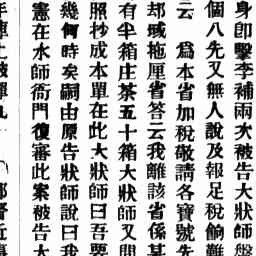 身卽擊李補兩次被告大律師盤
個八先又無人說及報足稅餉難
云　爲本省加稅敬請各寶號先
却駁拖厘省答云我離該省係某
有半箱庄茶五十箱大狀師又問
照抄成本單在此大狀師曰吾要
幾何時矣嗣由原告狀師說曰我
憲在水師衙門復審此案被告大